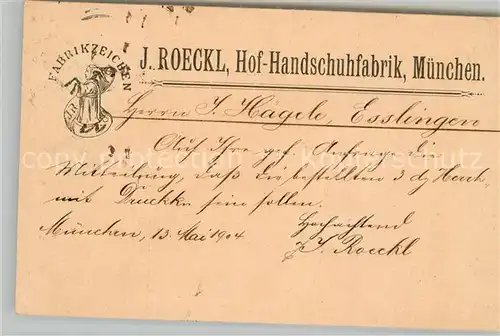 FABRIKZEICHEN
J. ROECKL, Hof-Handschuhfabrik, München.
Herrn J. Hägele, Esslingen
Auf Ihre gef. Anfrage die
Mitteilung, daß die bestellten 3 dz
mit Druckk. sein sollen.
Hochachtend
München, 13. Mai 1904
J. Roeckl